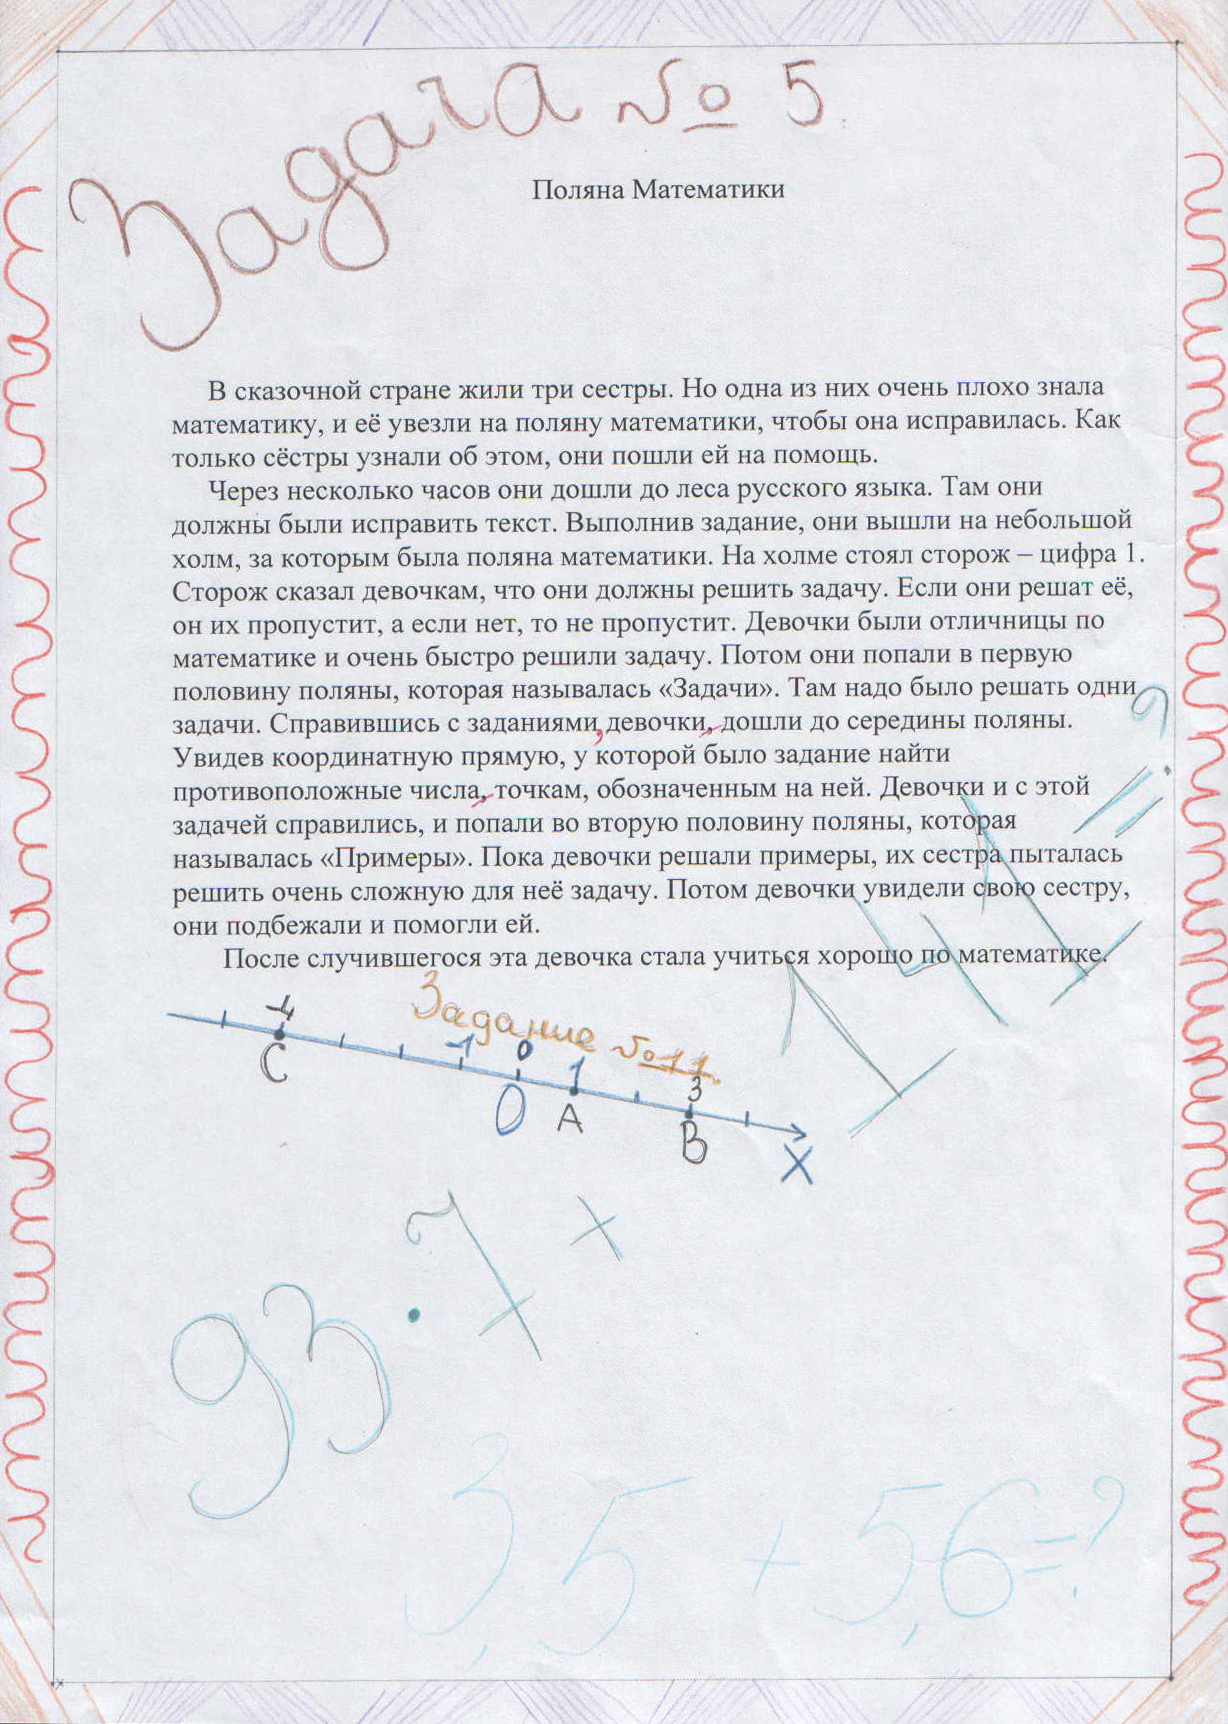 Задача № 5
Поляна Математики
В сказочной стране жили три сестры. Но одна из них очень плохо знала
математику, и её увезли на поляну математики, чтобы она исправилась. Как
только сёстры узнали об этом, они пошли ей на помощь.
Через несколько часов они дошли до леса русского языка. Там они
должны были исправить текст. Выполнив задание, они вышли на небольшой
холм, за которым была поляна математики. На холме стоял сторож – цифра 1.
Сторож сказал девочкам, что они должны решить задачу. Если они решат её,
он их пропустит, а если нет, то не пропустит. Девочки были отличницы по
математике и очень быстро решили задачу. Потом они попали в первую
половину поляны, которая называлась «Задачи». Там надо было решать одни
задачи. Справившись с заданиями, девочки, дошли до середины поляны.
Увидев координатную прямую, у которой было задание найти
противоположные числа, точкам, обозначенным на ней. Девочки и с этой
задачей справились, и попали во вторую половину поляны, которая
называлась «Примеры». Пока девочки решали примеры, их сестра пыталась
решить очень сложную для неё задачу. Потом девочки увидели свою сестру,
они подбежали и помогли ей.
После случившегося эта девочка стала учиться хорошо по математике.
Задание №11.
-4 -1 0 1 3
C O A B X
93 · 7 + 141 = ?
3,5 + 5,6 = ?